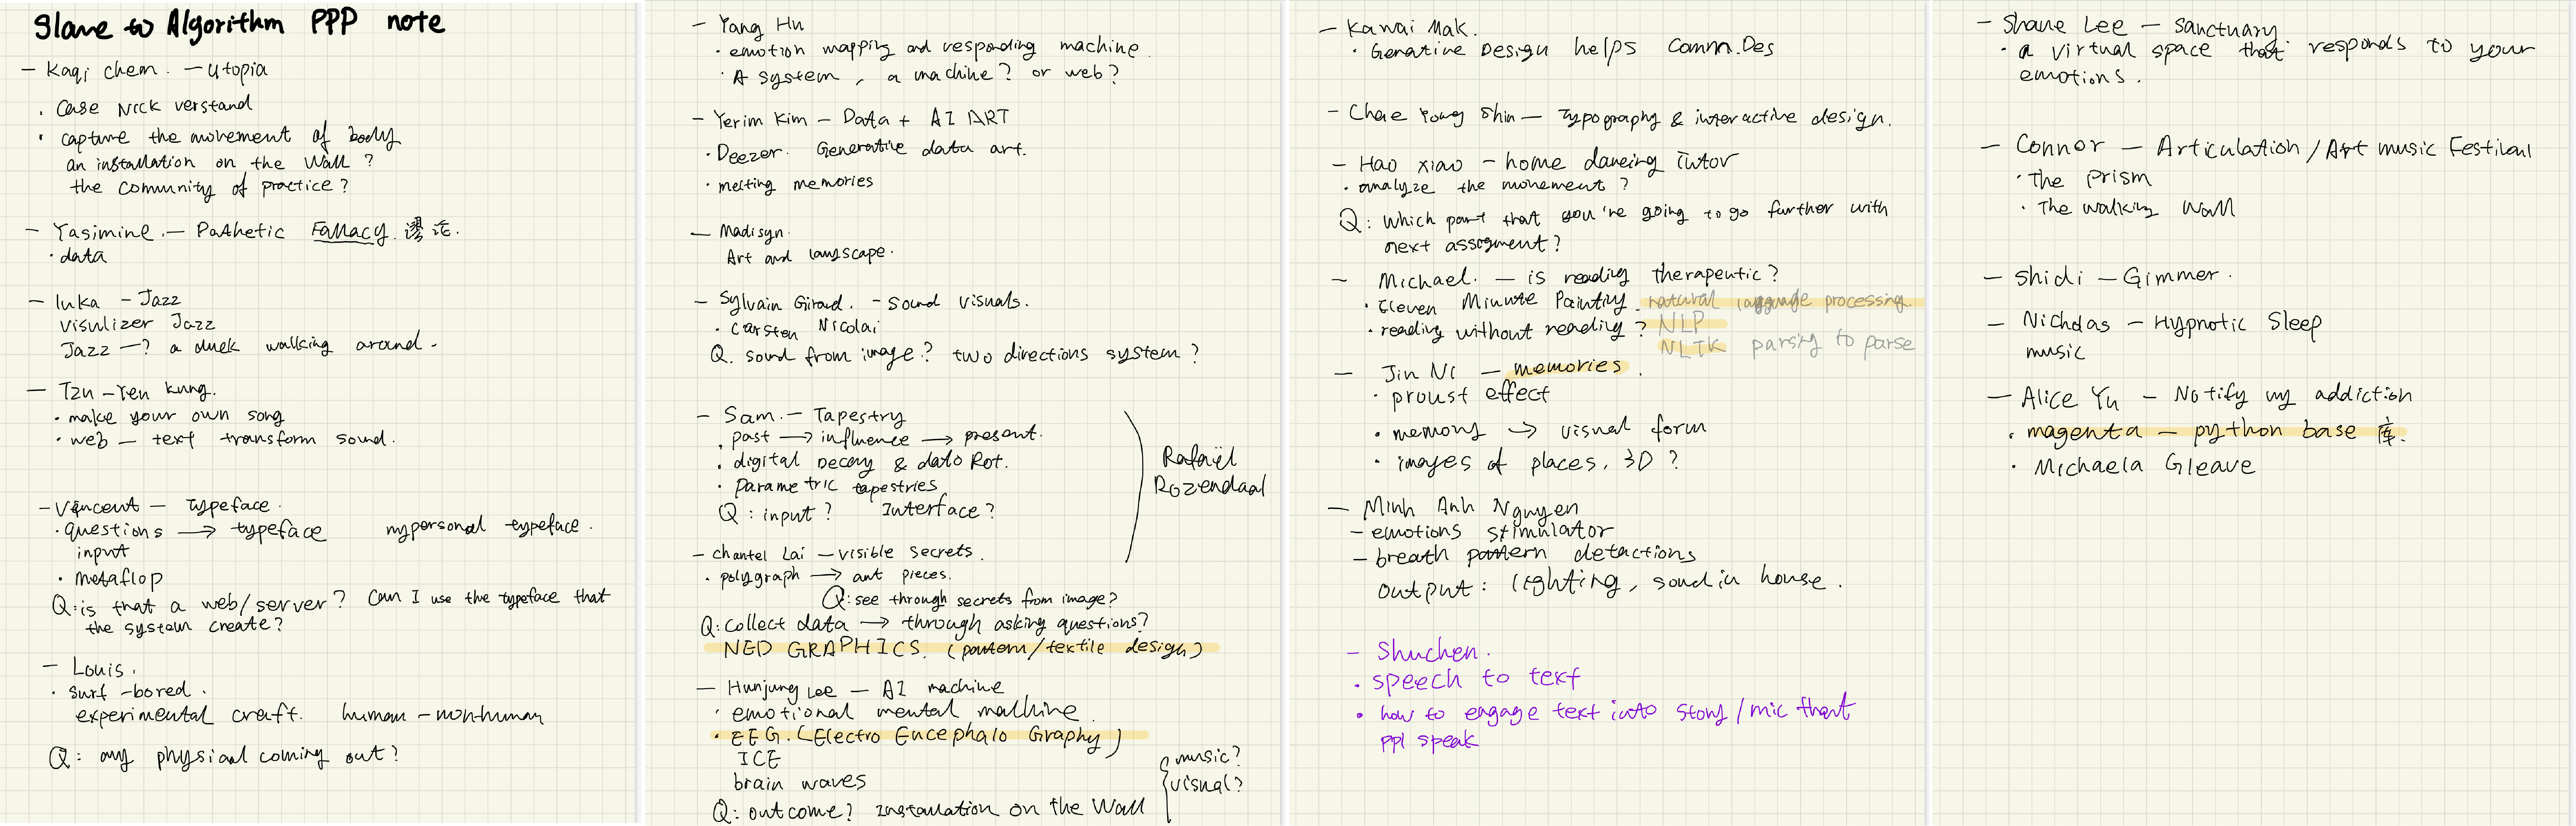 Slave to Algorithm PPP note
- Kaqi chem. - Utopia
. Case Nick verstand
. capture the movement of body
an installation on the Wall?
the Community of practice?
- Yasimine. - Pathetic Fallacy. 谬论.
. data
- luka - Jazz
visulizer Jazz
Jazz -? a duck walking around.
- Tzu-Yen Kung.
. make your own song
. web - text transform sound.
- Vincent - Typeface.
. questions → typeface mypersonal typeface.
input
. metaflop
Q: is that a web/server? Can I use the typeface that
the system create?
- Louis.
. surf-bored.
experimental craft. human-nonhuman
Q: any physical coming out?
- Yang Hu
. emotion mapping and responding machine.
. A system, a machine? or web?
- Yerim Kim - Data + AI ART
. Deezer. Generative data art.
. melting memories
- Madisyn.
Art and landscape.
- Sylvain Giraud. - Sound visuals.
. Carsten Nicolai
Q. sound from image? two directions system?
- Sam. - Tapestry
. past → influence → present.
. digital Decay & data Rot.
. parametric tapestries
Q: input? Interface?
Rafaël
Rozendaal
- Chantel Lai - visible secrets.
. polygraph → art pieces.
Q: see through secrets from image?
Q: Collect data → through asking questions?
NED GRAPHICS. (pattern/textile design)
- Hunjung Lee - AI machine
. emotional mental machine.
. EEG. (Electro Encephalo Graphy)
ICE
brain waves
music?
visual?
Q: outcome? Installation on the Wall
- Kawai Mak.
. Genative Design helps Comm.Des
- Chae Yong Shin - Typography & interactive design.
- Hao xiao - home dancing Tutor
. analyze the movement?
Q: Which part that you're going to go further with
next assogment?
- Michael. - is reading therapeutic?
. Eleven Minute Painting. natural language processing.
. reading without reading? NLP
NLTK parsing to parse
- Jin Ni - memories.
. proust effect
. memory → visual form
. images of places, 3D?
- Minh Anh Nguyen
- emotions stimulator
- breath pattern detactions
output: lighting, sound in house.
- Shuchen.
. speech to text
. how to engage text into story/mic that
ppl speak
- Shane Lee - Sanctuary
. a virtual space that responds to your
emotions.
- Connor - Articulation/Art music Festival
. The prism
. The walking Wall
- Shidi - Gimmer.
- Nicholas - Hypnotic Sleep
music
- Alice Yu - Notify my addiction
. magenta - python base 库.
. Michaela Gleave